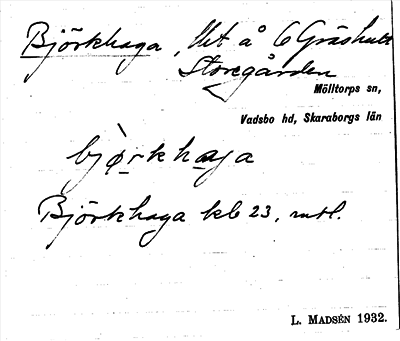 Björkhaga, lht å 6 Gräshult
Storegården
Mölltorps sn,
Vadsbo hd, Skaraborgs län
bjørkhaga
Björkhaga kb 23, mtl.
L. MADSÉN 1932.